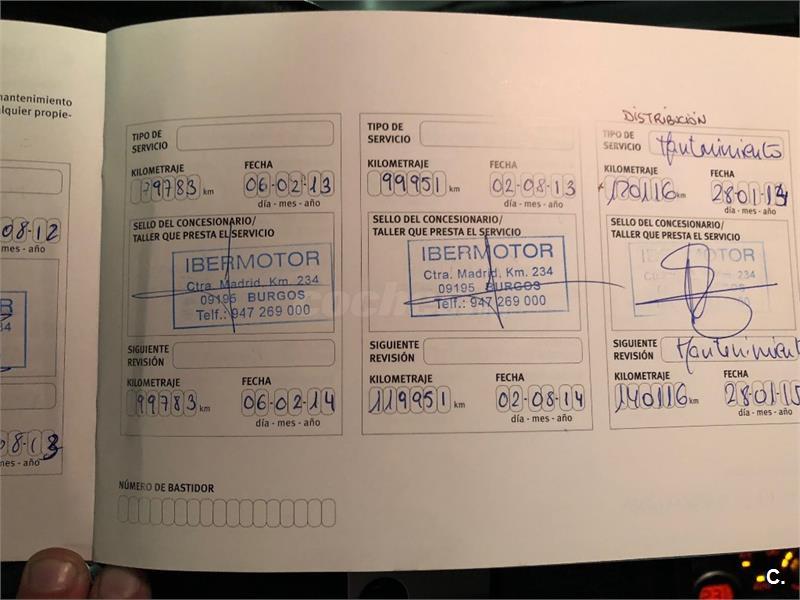 mantenimiento
alquier propie-
08-12
mes - año
08-13
mes - año
TIPO DE
SERVICIO
KILOMETRAJE
FECHA
79783 km
06-02-13
día - mes - año
SELLO DEL CONCESIONARIO/
TALLER QUE PRESTA EL SERVICIO
IBERMOTOR
Ctra. Madrid, Km. 234
09195 BURGOS
Telf.: 947 269 000
SIGUIENTE
REVISIÓN
KILOMETRAJE
FECHA
99783 km
06-02-14
día - mes - año
TIPO DE
SERVICIO
KILOMETRAJE
FECHA
99951 km
02-08-13
día - mes - año
SELLO DEL CONCESIONARIO/
TALLER QUE PRESTA EL SERVICIO
IBERMOTOR
Ctra. Madrid, Km. 234
09195 BURGOS
Telf.: 947 269 000
SIGUIENTE
REVISIÓN
KILOMETRAJE
FECHA
119951 km
02-08-14
día - mes - año
DISTRIBUCIÓN
TIPO DE
SERVICIO
Mantenimiento
KILOMETRAJE
FECHA
120116 km
28-01-14
día - mes - año
SELLO DEL CONCESIONARIO/
TALLER QUE PRESTA EL SERVICIO
IBERMOTOR
SIGUIENTE
REVISIÓN
Mantenimiento
KILOMETRAJE
FECHA
140116 km
28-01-15
día - mes - año
NÚMERO DE BASTIDOR
C.